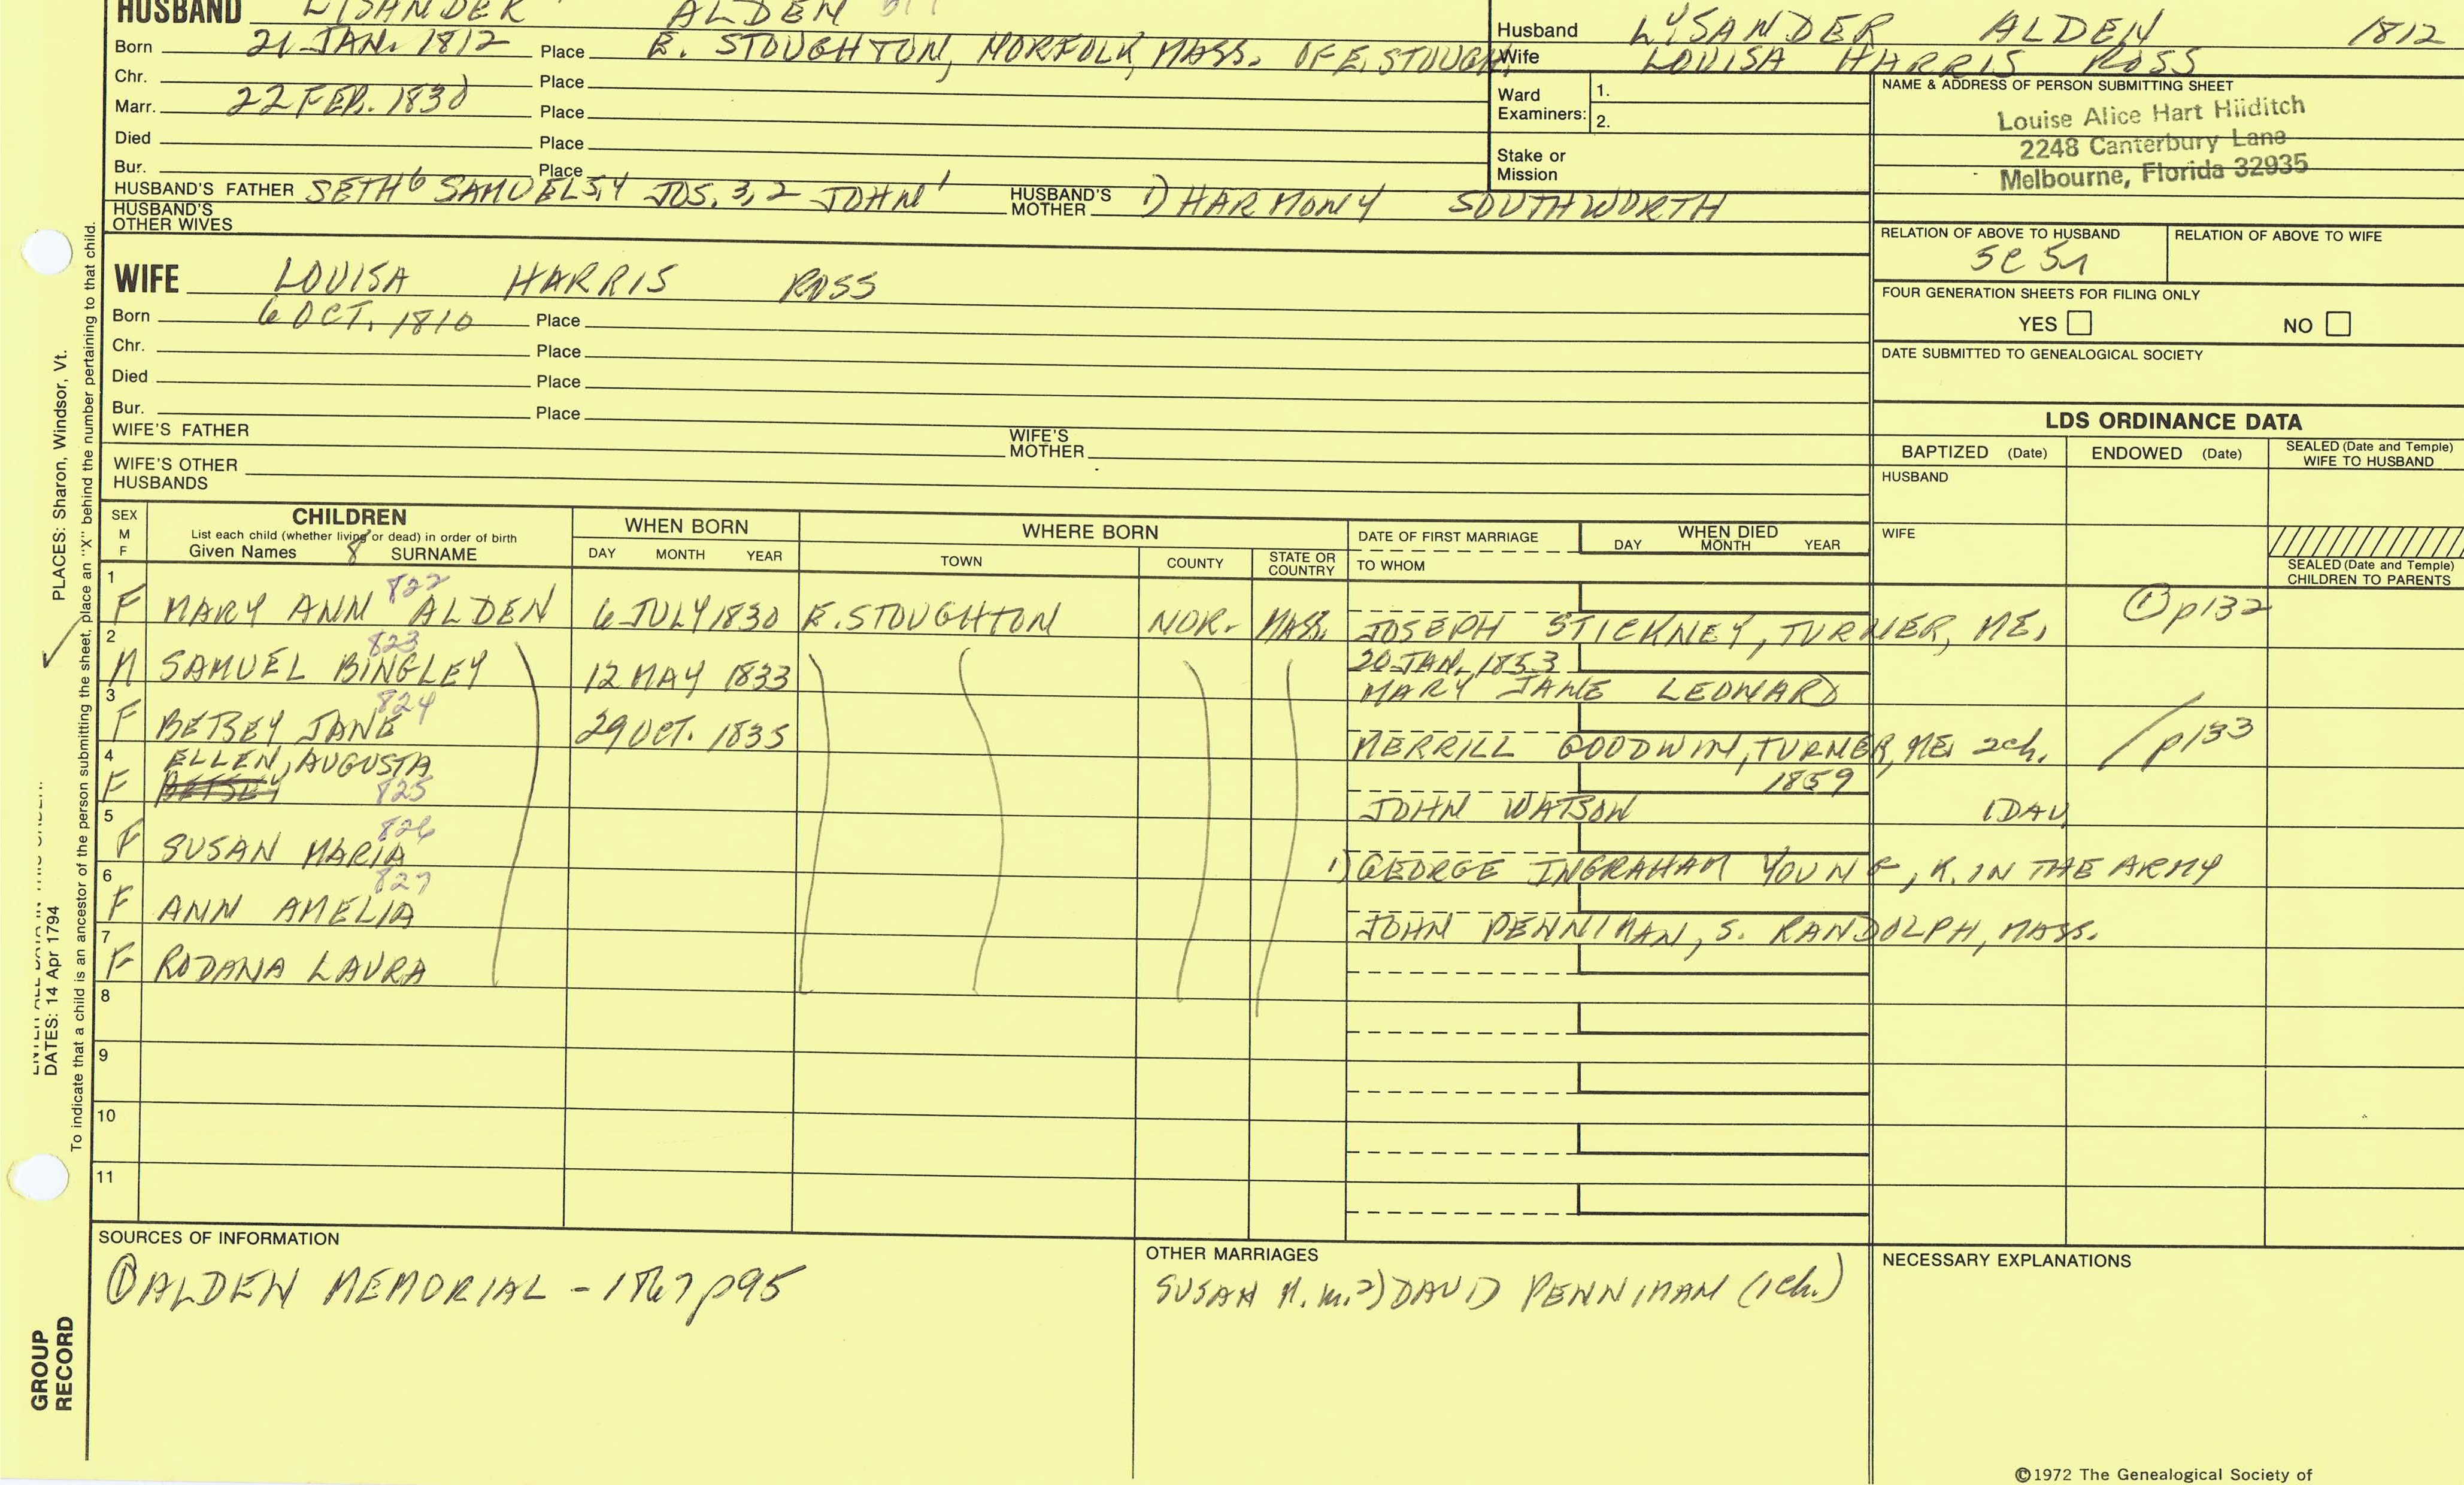 HUSBAND LYSANDER ALDEN
Born 21 JAN. 1812 Place E. STOUGHTON, NORFOLK, MASS. OF E. STOUGH.
Chr. Place
Marr. 22 FEB. 1830 Place
Died Place
Bur. Place
HUSBAND'S FATHER SETH6 SAMUEL5,4 JOS.3,2 JOHN1 HUSBAND'S MOTHER 1) HARMONY SOUTHWORTH
HUSBAND'S OTHER WIVES
Husband LYSANDER ALDEN 1812
Wife LOUISA HARRIS ROSS
Ward Examiners: 1.
2.
Stake or Mission
NAME & ADDRESS OF PERSON SUBMITTING SHEET
Louise Alice Hart Hilditch
2248 Canterbury Lane
Melbourne, Florida 32935
RELATION OF ABOVE TO HUSBAND RELATION OF ABOVE TO WIFE
FOUR GENERATION SHEETS FOR FILING ONLY
YES NO
DATE SUBMITTED TO GENEALOGICAL SOCIETY
WIFE LOUISA HARRIS ROSS
Born 6 OCT. 1810 Place
Chr. Place
Died Place
Bur. Place
WIFE'S FATHER WIFE'S MOTHER
WIFE'S OTHER HUSBANDS
LDS ORDINANCE DATA
BAPTIZED (Date) ENDOWED (Date) SEALED (Date and Temple) WIFE TO HUSBAND
HUSBAND
WIFE
SEALED (Date and Temple) CHILDREN TO PARENTS
SEX M F
CHILDREN
List each child (whether living or dead) in order of birth
Given Names 8 SURNAME
WHEN BORN
DAY MONTH YEAR
WHERE BORN
TOWN COUNTY STATE OR COUNTRY
DATE OF FIRST MARRIAGE
TO WHOM
WHEN DIED
DAY MONTH YEAR
822
1 F MARY ANN ALDEN 6 JULY 1830 E. STOUGHTON NOR. MASS. JOSEPH STICKNEY, TURNER, ME. ① p132
823
20 JAN. 1853
2 M SAMUEL BINGLEY 12 MAY 1833 MARY JANE LEONARD
824
3 F BETSEY JANE 29 OCT. 1835 MERRILL GOODWIN, TURNER, ME. 2ch. / p133
4 F ELLEN AUGUSTA
BETSEY 825 1859
JOHN WATSON 1 DAU
826
5 F SUSAN MARIA 1) GEORGE INGRAHAM YOUNG, K. IN THE ARMY
827
6 F ANN AMELIA JOHN PENNIMAN, S. RANDOLPH, MASS.
7 F RODANA LAURA
8
9
10
11
SOURCES OF INFORMATION
① ALDEN MEMORIAL - 1867 p95
OTHER MARRIAGES
SUSAN M. m. 2) DAVID PENNIMAN (1ch.)
NECESSARY EXPLANATIONS
©1972 The Genealogical Society of
PLACES: Sharon, Windsor, Vt.
DATES: 14 Apr 1794
To indicate that a child is an ancestor of the person submitting the sheet, place an "X" behind the number pertaining to that child.
GROUP RECORD